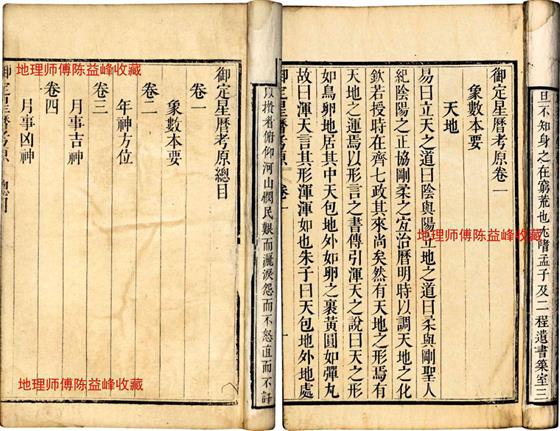 旦不知身之在窮荒也尤精孟子及二程遺書築室三
御定星曆考原卷一
象數本要
天地
易曰立天之道曰陰與陽立地之道曰柔與剛聖人
紀陰陽之正協剛柔之宜治曆明時以調天地之化
欽若授時在齊七政其來尚矣然有天地之形焉有
天地之運焉以形言之書傳引渾天之說曰天之形
如鳥卵地居其中天包地外如卵之裹黃圓如彈丸
故曰渾天言其形渾渾如也朱子曰天包地外地處
御定星曆考原 卷一
俯仰河山憫民艱而灑淚怨而不怒直而不計
御定星曆考原總目
卷一
象數本要
卷二
年神方位
卷三
月事吉神
卷四
月事凶神
御定星曆考原 總目
地理师傅陈益峰收藏
地理师傅陈益峰收藏
地理师傅陈益峰收藏